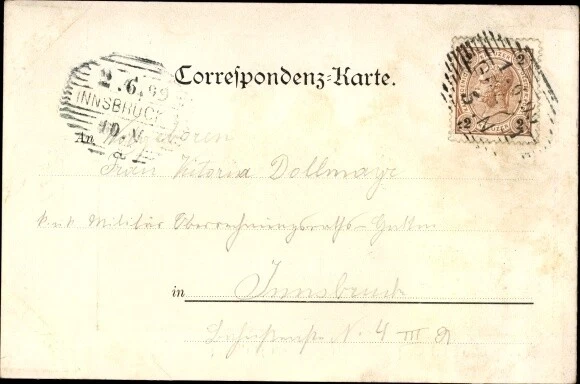 Correspondenz-Karte.
2.6.99
INNSBRUCK
An Wohlgeboren
Frau Victoria Dollmayr
k.u.k. Militär Oberrechnungsraths-Gattin
in Innsbruck
N. 4 III
2 2